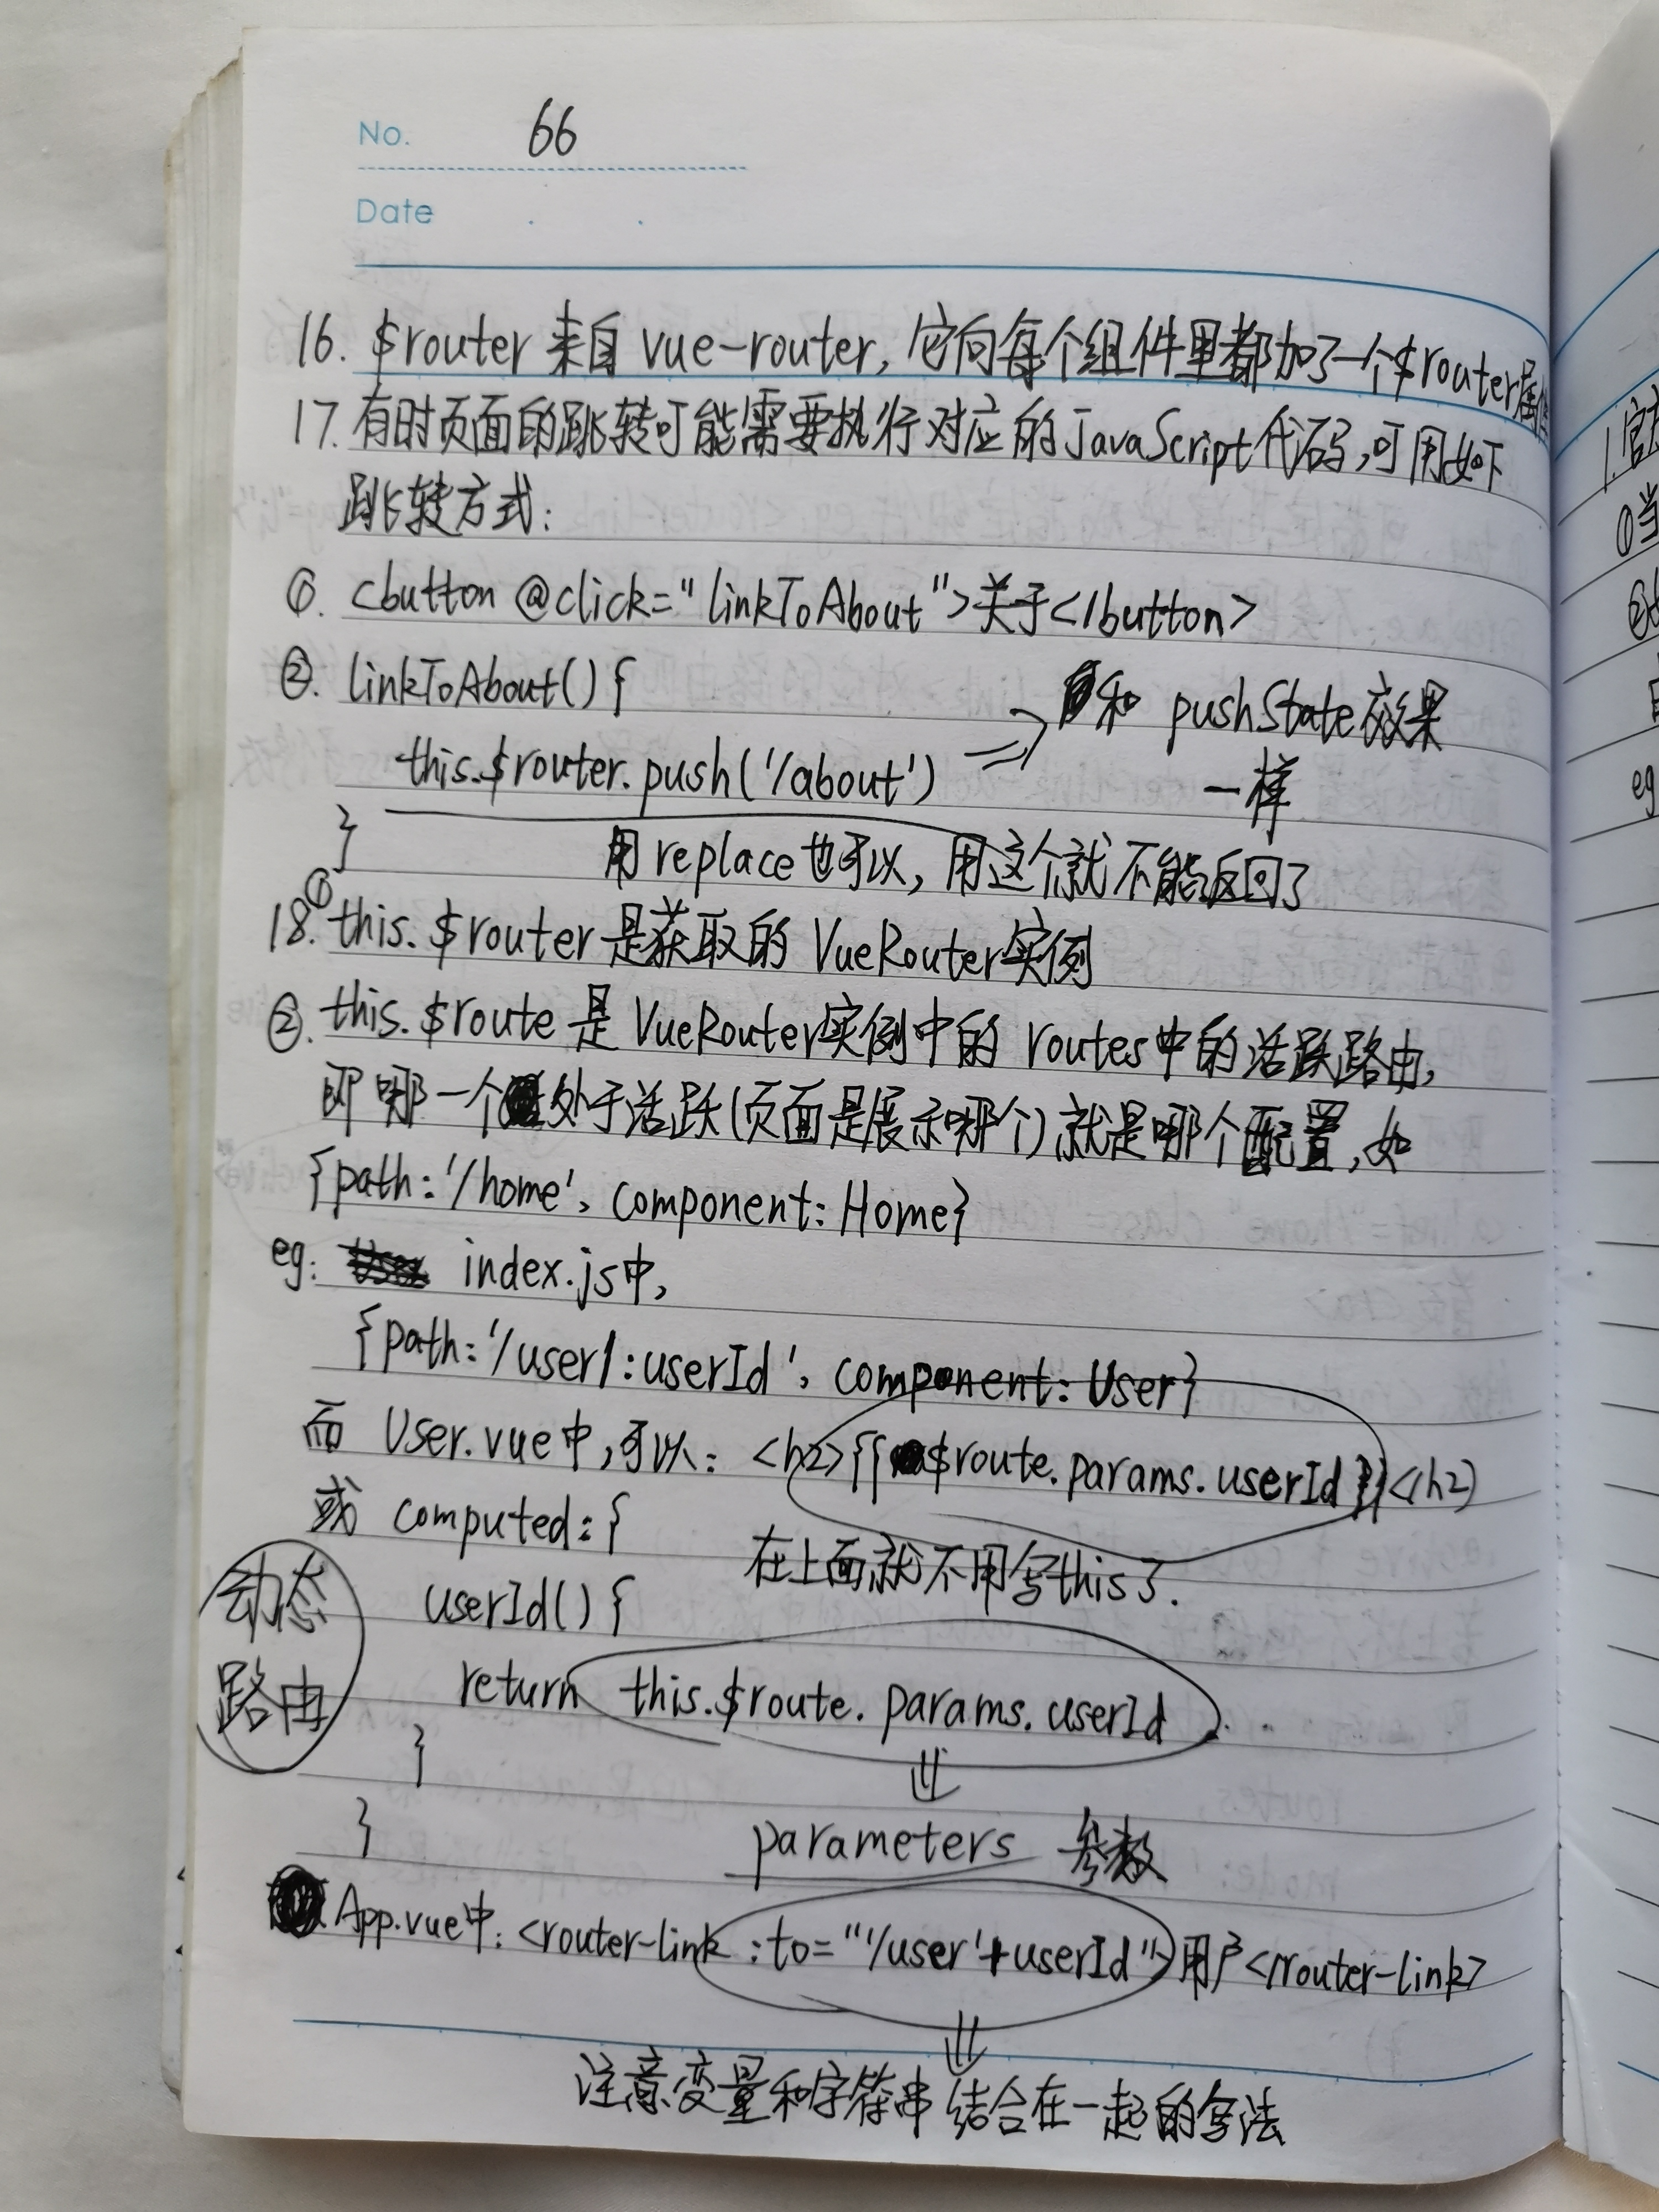 No. 66
Date
16. $router 来自 vue-router, 它向每个组件里都加了一个$router属性
17. 有时页面的跳转可能需要执行对应的JavaScript代码,可用如下
跳转方式:
①. <button @click="linkToAbout">关于</button>
②. linkToAbout() {
this.$router.push('/about') => 和 pushState效果
一样
}
用replace也可以, 用这个就不能返回了
18.① this.$router是获取的 VueRouter实例
②. this.$route 是 VueRouter实例中的 routes中的活跃路由,
即哪一个处于活跃(页面是展示哪个)就是哪个配置,如
{path:'/home', component: Home}
eg: index.js中,
{path:'/user/:userId', component: User}
而 User.vue中,可以: <h2>{{$route.params.userId}}</h2>
或 computed: {
在上面就不用写this了.
userId() {
动态
路由
return this.$route.params.userId
}
}
parameters 参数
App.vue中: <router-link :to="'/user'+userId">用户</router-link>
注意变量和字符串结合在一起的写法
1.官
①当
②
eg